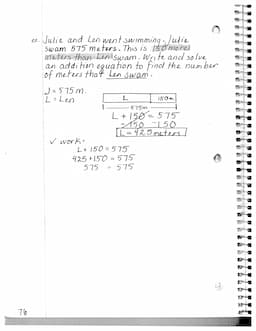 Julie and Len went swimming. Julie
swam 575 meters. This is 150 more
meters than Len swam. Write and solve
an addition equation to find the number
of meters that Len swam.
J = 575 m.
L = Len
L 150m
575m
L + 150 = 575
-150 -150
L = 425 meters
✓ work:
L + 150 = 575
425 + 150 = 575
575 = 575